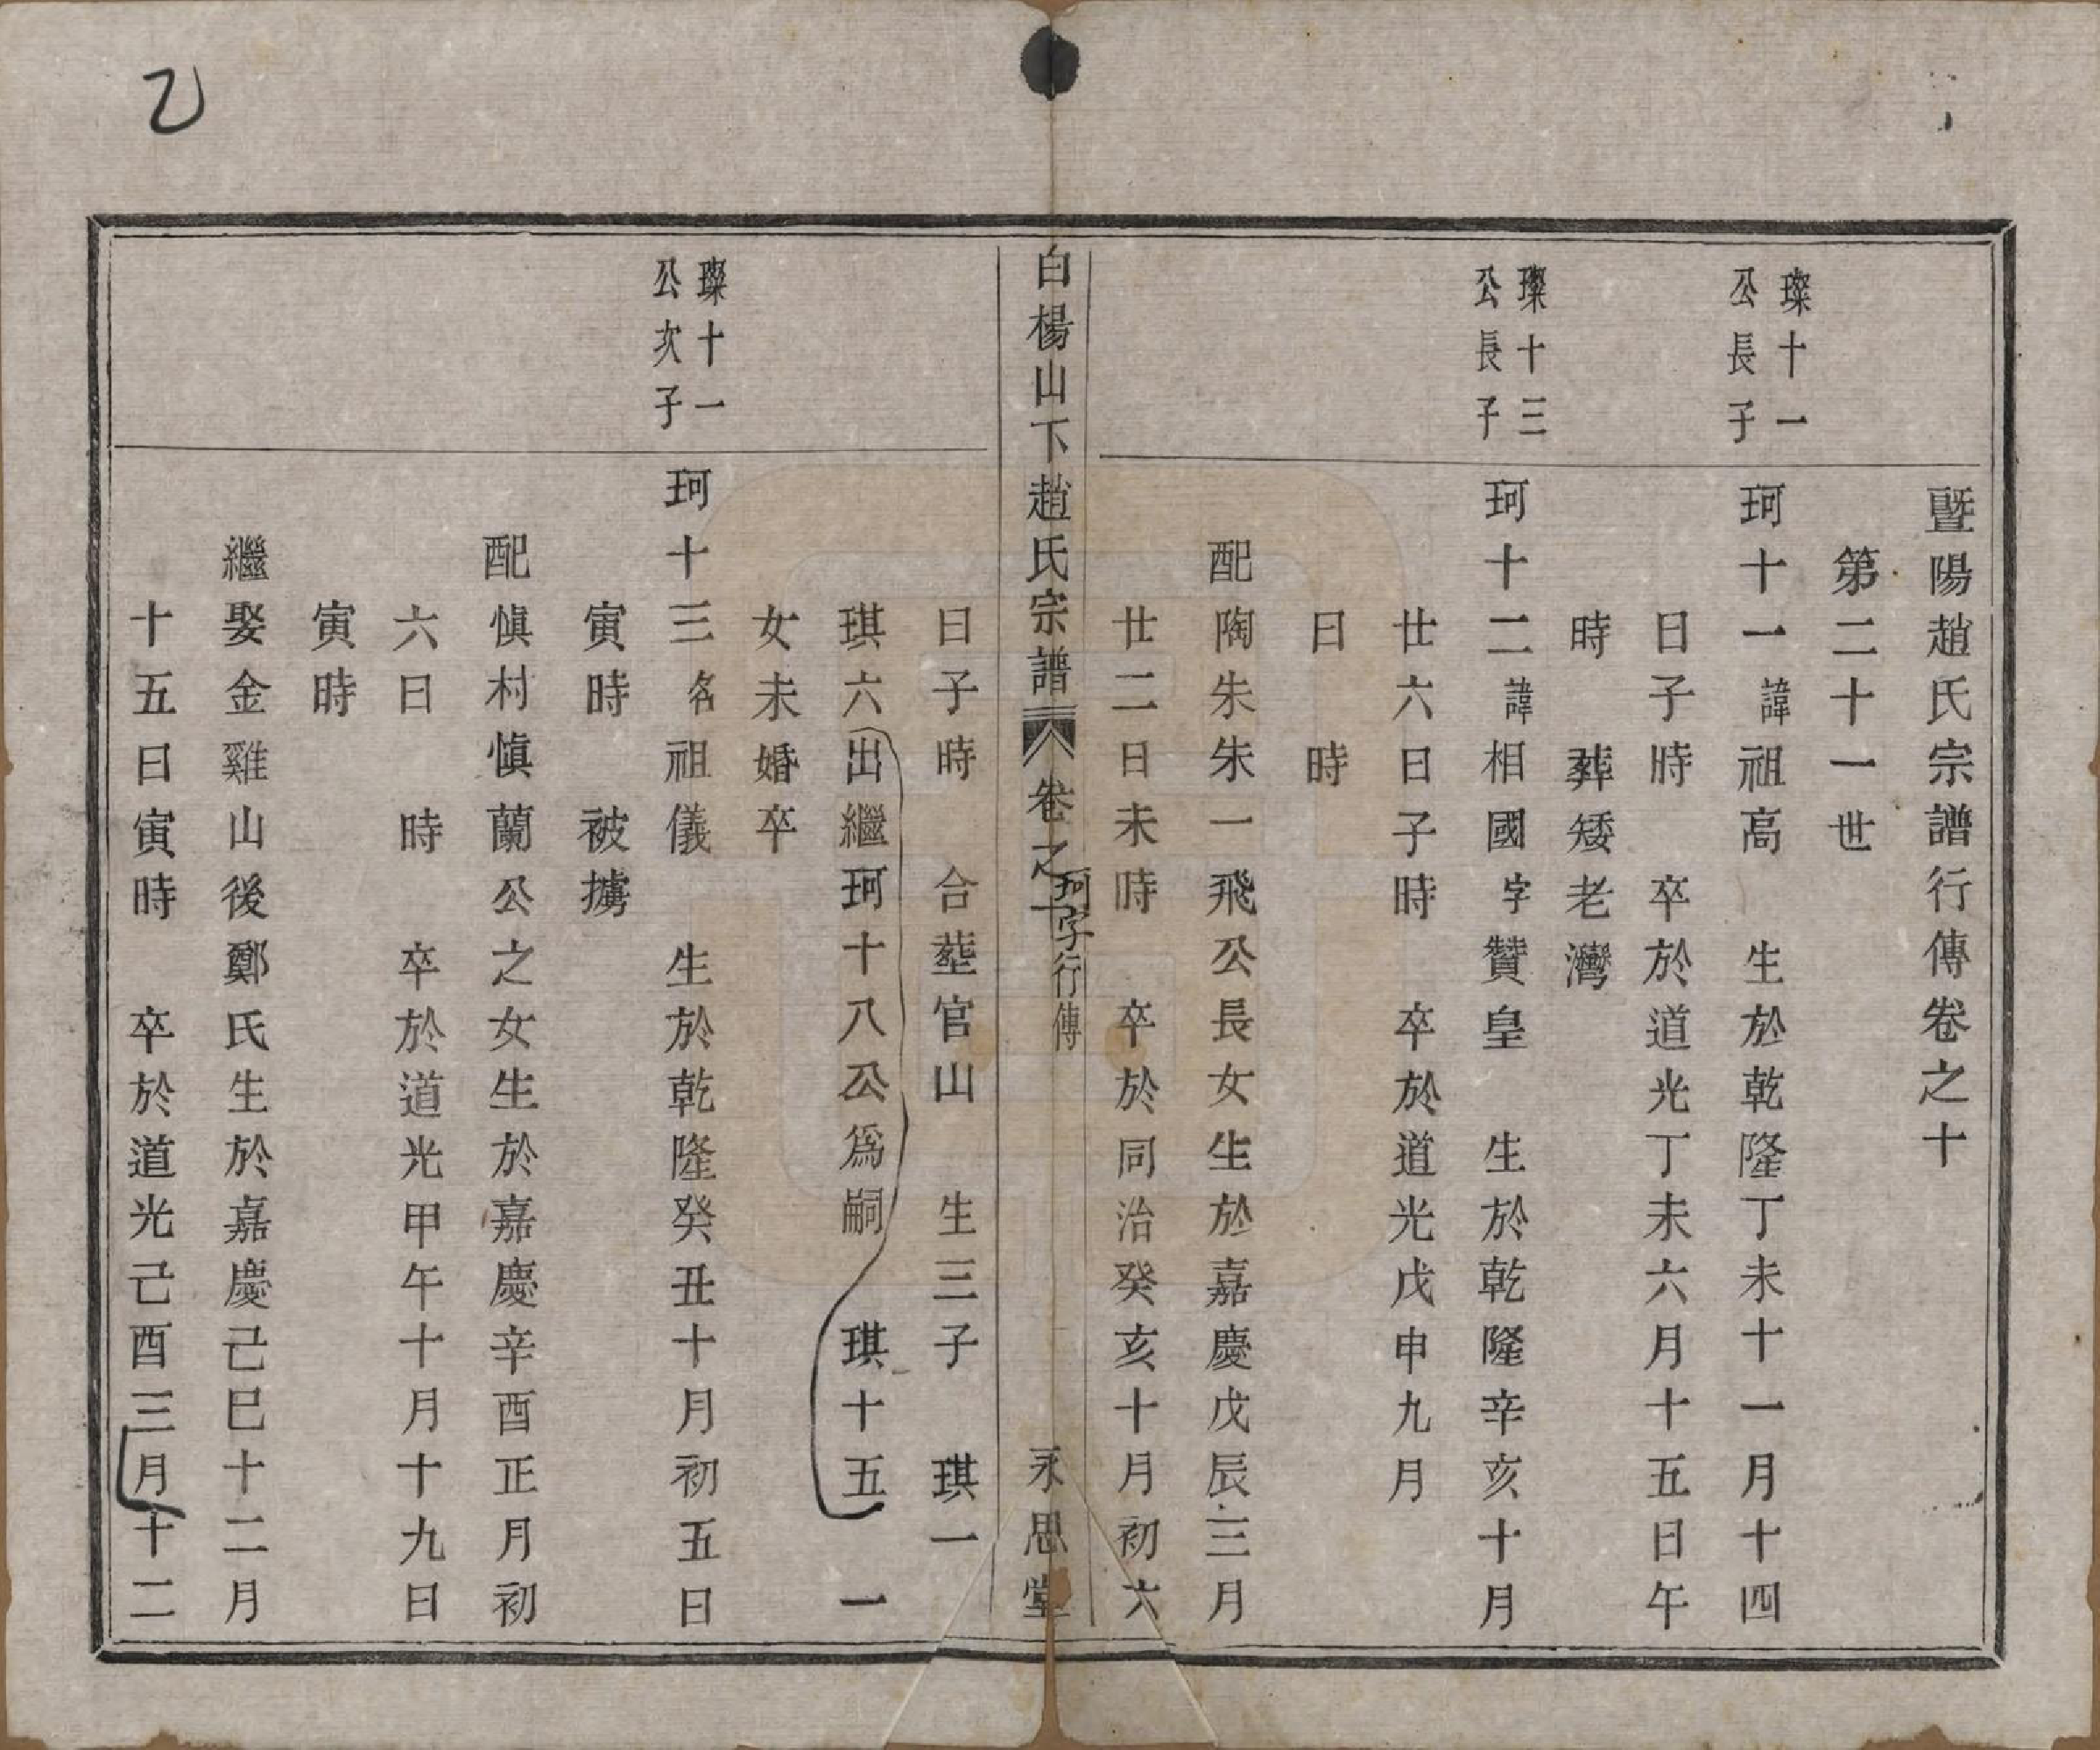 暨陽趙氏宗譜行傳卷之十
第二十一世
璨十一
公長子
珂十一諱祖高　生於乾隆丁未十一月十四
日子時　卒於道光丁未六月十五日午
時　葬矮老灣
璨十三
公長子
珂十二諱相國字贊皇　生於乾隆辛亥十月
廿六日子時　卒於道光戊申九月
日　時
配陶朱朱一飛公長女生於嘉慶戊辰三月
廿二日未時　卒於同治癸亥十月初六
白楊山下趙氏宗譜　卷之十　珂字行傳　永思堂
日子時　合塟官山　生三子　琪一
琪六出繼珂十八公爲嗣　琪十五　一
女未婚卒
璨十一
公次子
珂十三名祖儀　生於乾隆癸丑十月初五日
寅時　被擄
配愼村愼蘭公之女生於嘉慶辛酉正月初
六日　時　卒於道光甲午十月十九日
寅時
繼娶金雞山後鄭氏生於嘉慶己巳十二月
十五日寅時　卒於道光己酉三月十二
乙